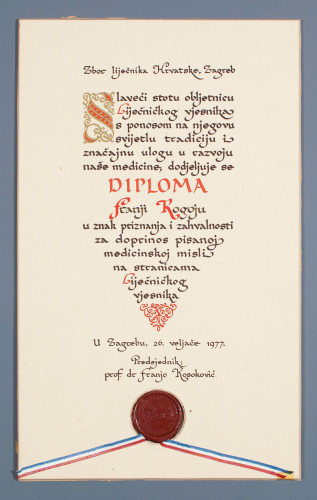 Zbor liječnika Hrvatske, Zagreb
Slaveći stotu obljetnicu
Liječničkog vjesnika
s ponosom na njegovu
svijetlu tradiciju i
značajnu ulogu u razvoju
naše medicine, dodjeljuje se
DIPLOMA
Franji Kogoju
u znak priznanja i zahvalnosti
za doprinos pisanoj
medicinskoj misli
na stranicama
Liječničkog
vjesnika
U Zagrebu, 26. veljače 1977.
Predsjednik:
prof dr Franjo Kosoković